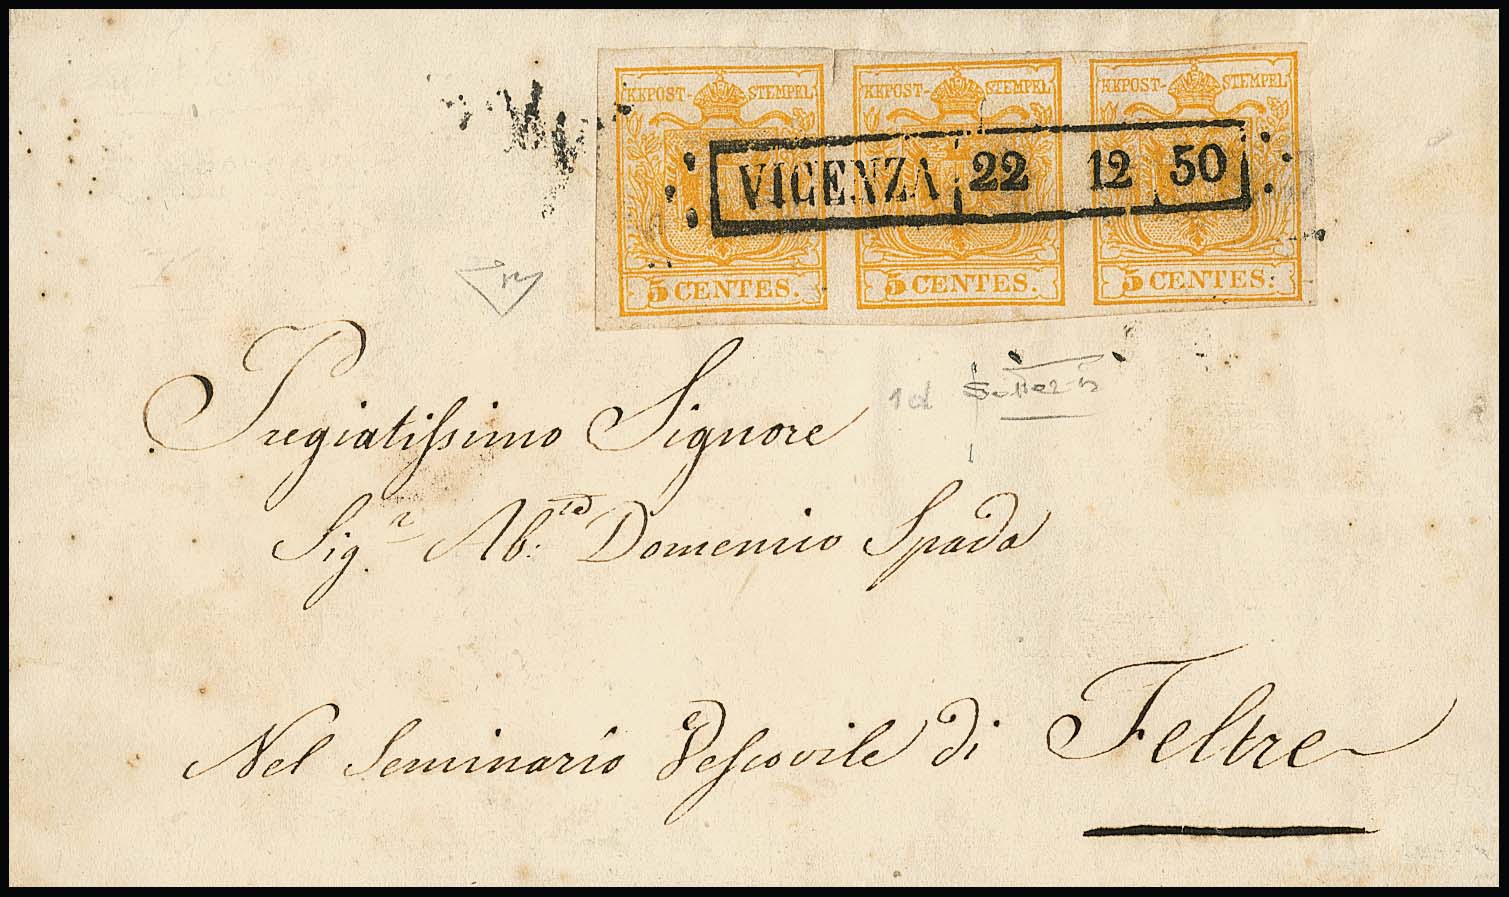 KKPOST-STEMPEL KKPOST-STEMPEL KKPOST-STEMPEL
VICENZA 22 12 50
5 CENTES. 5 CENTES. 5 CENTES.
1d
Pregiatissimo Signore
Sig.r Ab: Domenico Spada
Nel Seminario Vescovile di Feltre